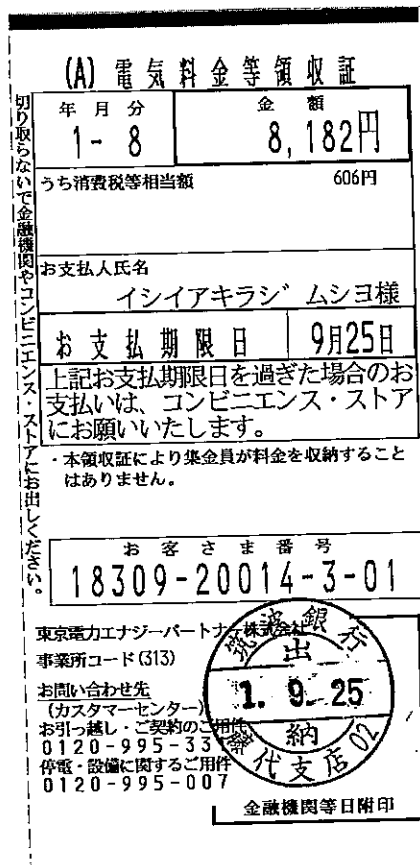 (A) 電気料金等領収証
切り取らないで金融機関やコンビニエンス・ストアにお出しください。
年月分
金額
1- 8
8,182円
うち消費税等相当額
606円
お支払人氏名
イシイアキラジ゛ムシヨ様
お支払期限日
9月25日
上記お支払期限日を過ぎた場合のお
支払いは、コンビニエンス・ストア
にお願いいたします。
・本領収証により集金員が料金を収納すること
はありません。
お客さま番号
18309-20014-3-01
東京電力エナジーパートナー株式会社
事業所コード(313)
お問い合わせ先
(カスタマーセンター)
お引っ越し・ご契約のご用件
0120-995-33
停電・設備に関するご用件
0120-995-007
筑波銀行
出
1. 9. 25
納
代支店 02
金融機関等日附印